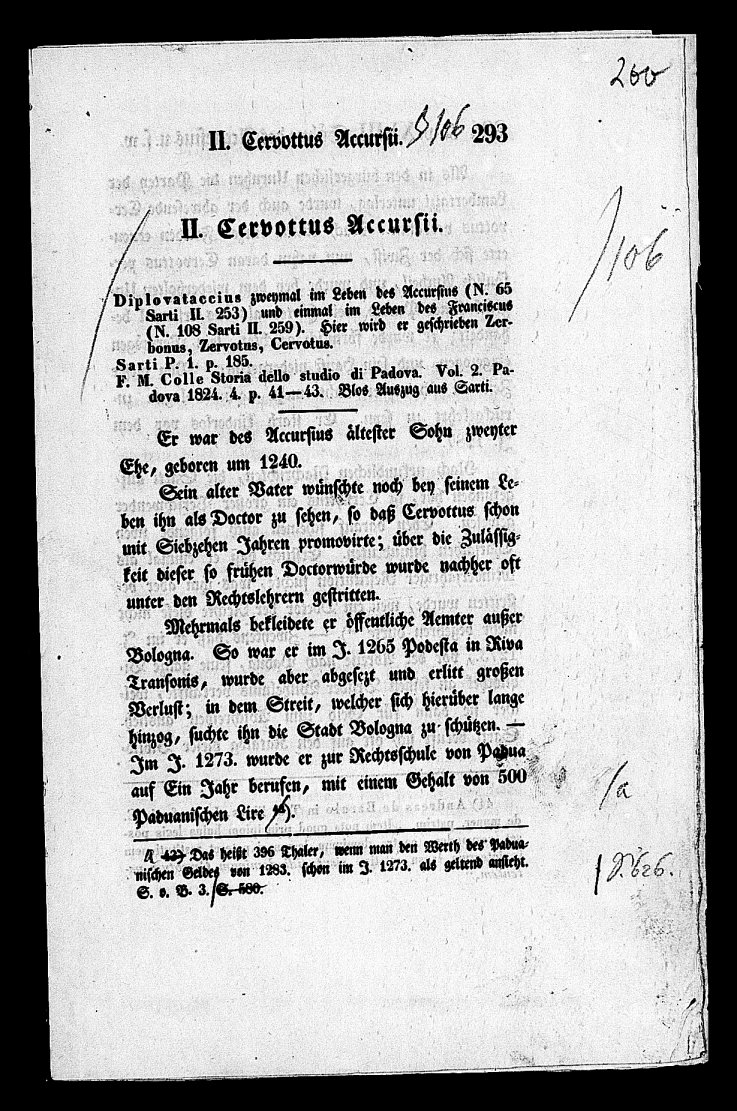 200
II. Cervottus Accursii. § 106 293
II. Cervottus Accursii.
/106
Diplovataccius zweymal im Leben des Accursius (N. 65
Sarti II. 253) und einmal im Leben des Franciscus
(N. 108 Sarti II. 259). Hier wird er geschrieben Zer-
bonus, Zervotus, Cervotus.
Sarti P. 1. p. 185.
F. M. Colle Storia dello studio di Padova. Vol. 2. Pa-
dova 1824. 4. p. 41—43. Blos Auszug aus Sarti.
Er war des Accursius ältester Sohn zweyter
Ehe, geboren um 1240.
Sein alter Vater wünschte noch bey seinem Le-
ben ihn als Doctor zu sehen, so daß Cervottus schon
mit Siebzehen Jahren promovirte; über die Zulässig-
keit dieser so frühen Doctorwürde wurde nachher oft
unter den Rechtslehrern gestritten.
Mehrmals bekleidete er öffentliche Aemter außer
Bologna. So war er im J. 1265 Podesta in Riva
Transonis, wurde aber abgesezt und erlitt großen
Verlust; in dem Streit, welcher sich hierüber lange
hinzog, suchte ihn die Stadt Bologna zu schützen. —
Im J. 1273. wurde er zur Rechtsschule von Padua
auf Ein Jahr berufen, mit einem Gehalt von 500
Paduanischen Lire ).
/a
42) Das heißt 396 Thaler, wenn man den Werth des Padua-
nischen Geldes von 1283. schon im J. 1273. als geltend ansieht.
S. o. B. 3. S. 580.
S. 626.